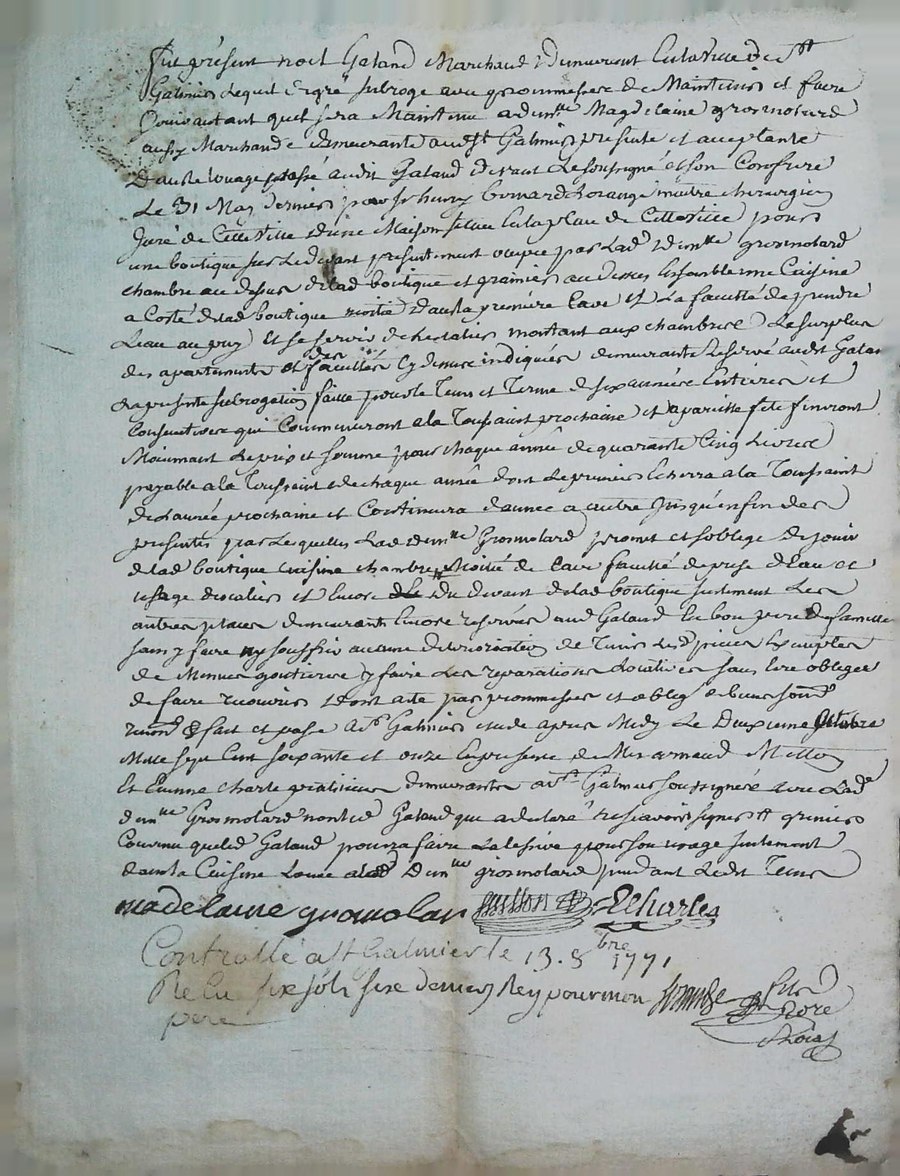 Fut présent noel Gataud Marchand demeurant en la ville de St
Galmier lequel de gré subroge avec prommesse de Maintenir et faire
jouir autant quil sera Maintenu a demlle Magdelaine grosmolard
aussy Marchande demeurante audt St Galmier presente et acceptante
Dans le louage passé audit Gataud devant le soussigné et son Confrere
Le 31 May dernier par sr henry bernard Lorange maitre chirurgien
Juré de Cette ville d'une Maison située en la place de Cette ville pour
une boutique sur le devant presentement occupée par lad demlle grosmolard
chambre au dessus de lad boutique et grenier au dessus Ensemble une Cuisine
a Costé de lad boutique moitié dans la premiere Cave et La faculté de prendre
Leau au puy et se servir de lescalier montant aux chambres Le surplus
des apartements et des facultés cy dessus indiquées demeurante reservé audit Gataud
La presente subrogation faitte pour le Tems et Terme de six années Entieres et
Consecutives que Commenceront a la Toussaint prochaine et a pareille fete finiront
Moiennant le prix et somme pour chaque année de quarante Cinq Livres
payable a la Toussaint de chaque année dont le premier Echerra a la Toussaint
de Lannée prochaine et Continuera dannée a autre jusqu'en fin des
presentes par lesquelles Lad demlle Grosmolard promet et soblige de jouir
de lad boutique Cuisine chambre Moitié de Cave faculté de prise dEau et
usage descalier et Encore du devant de lad boutique seulement les
autres places demeurant Encore reservées aud Gataud En bon pere de famille
sans y faire ny souffrir aucune deterioration de Tenir Lesd pieces Exemptes
de Menues goutieres y faire les reparations Locatives sans Etre obligée
de faire recouvrir Dont acte par prommesses et oblig de biens soum
renond fait et passé a St Galmier etude apres Midy Le Deuxieme Octobre
Mille sept Cent soixante et onze En presence de Mre armand Milton
Et Etienne Charle praticiens demeurants a St Galmier soussignés avec Lad
demlle Grosmolard non led Gataud qui a declaré ne scavoir signer
Convenu que led Gataud pourra faire La lessive pour son usage seulement
dans la Cuisine Louée a lad Demlle grosmolard pendant Ledit Tems
madelaine gromolar Musson ECharles
Controllé a St Galmier le 13. 8bre 1771
Reçu six sols six deniers Rey pour mon
pere